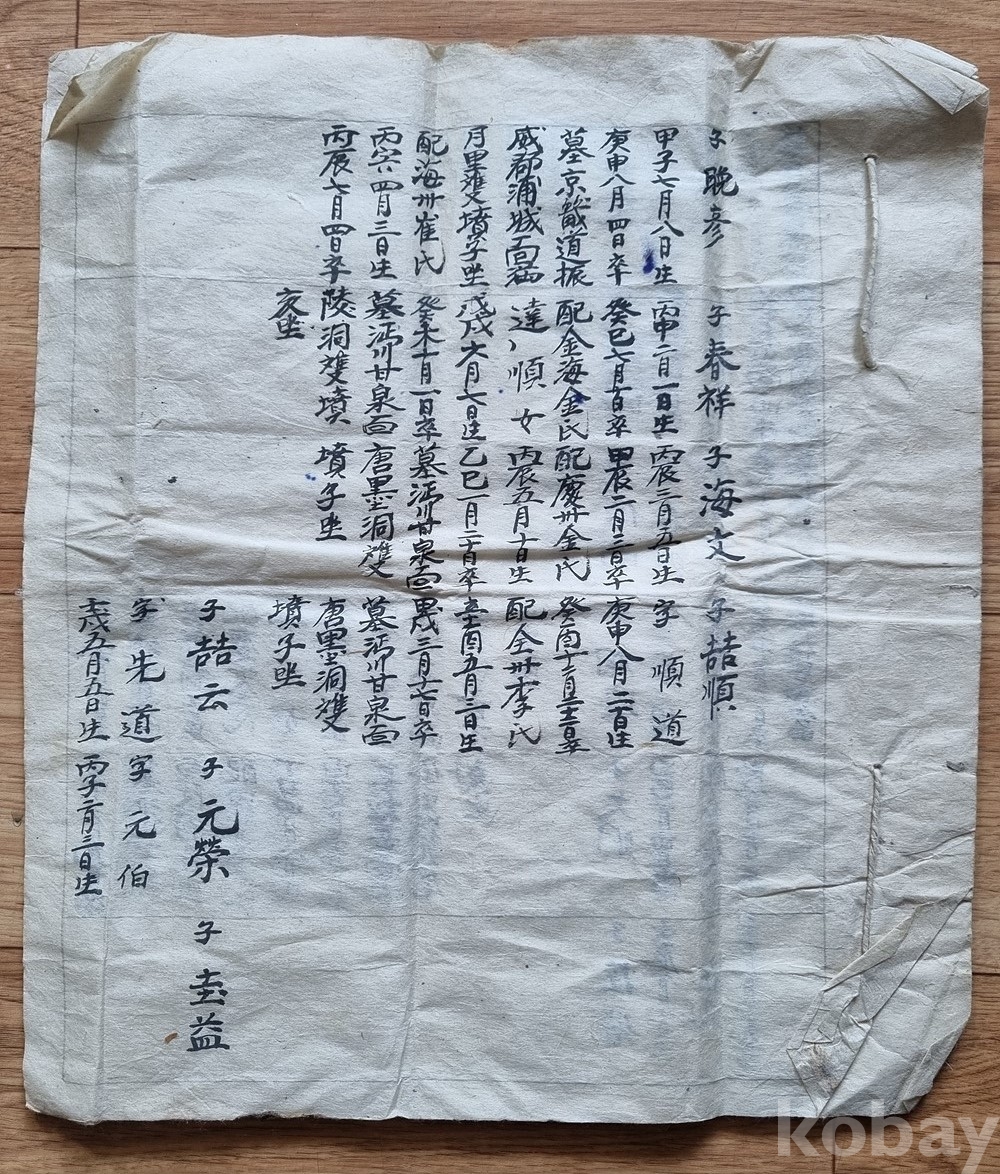 子 晩彦
甲子七月八日生
庚申八月四日卒
墓京畿道振
威郡浦城面
月里雙墳子坐
配海州崔氏
丙寅四月三日生
丙辰七月四日卒
子 春祥
丙申二月一日生
癸巳七月 日卒
配金海金氏
達順 女
戊戌六月七日生
癸未十月一日卒
墓沔川甘泉面
陵洞雙墳
亥坐
子 海文
丙辰三月五日生
甲辰二月二日卒
配慶州金氏
丙辰五月十日生
乙巳一月二十日卒
墓沔川甘泉面
唐墨洞雙
墳子坐
子 喆順
字 順道
庚申八月二十日生
癸酉十二月 日卒
配全州李氏
辛酉五月三日生
甲戌三月十七日卒
墓沔川甘泉面
唐墨洞雙
墳子坐
子 喆云
字 先道
壬戌五月五日生
子 元榮
字 元伯
丙子二月三日生
子 圭益
kobay